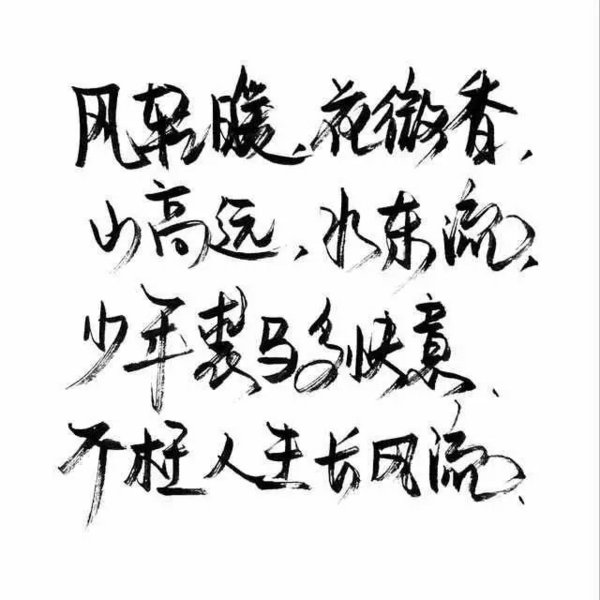 风轻暖、花微香，
山高远、水东流、
少年裘马多快意、
不枉人生长风流、